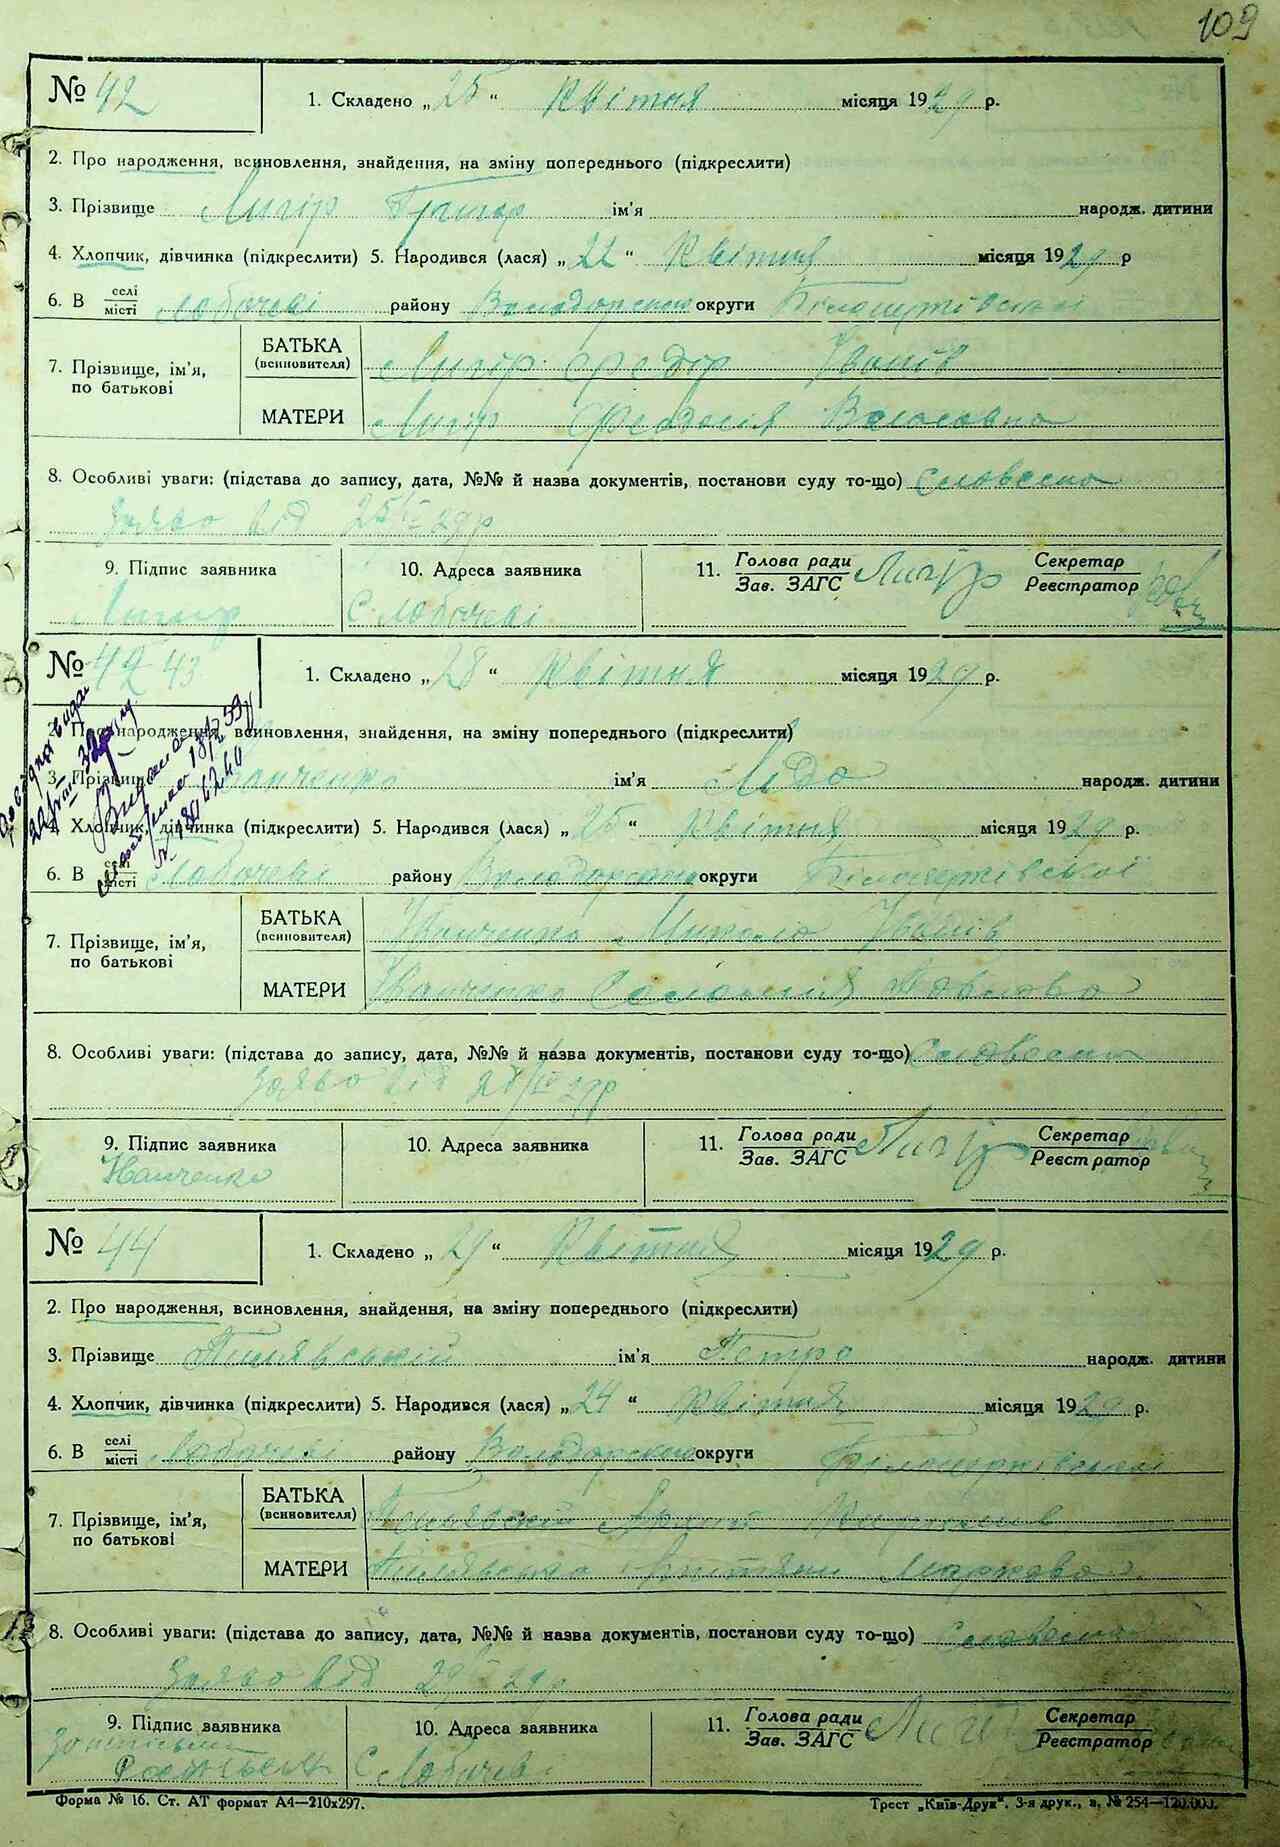 109
№ 42 1. Складено „ 25 “ Квітня місяця 1929 р.
2. Про народження, всиновлення, знайдення, на зміну попереднього (підкреслити)
3. Прізвище Лигір Григор ім'я народж. дитини
4. Хлопчик, дівчинка (підкреслити) 5. Народився (лася) „ 22 “ Квітня місяця 1929 р
6. В селі/місті Лобачеві району Володорсько округи
7. Прізвище, ім'я, по батькові БАТЬКА (всиновителя) Лигір Федір Іванів
МАТЕРИ Лигір Феодосія Власовна
8. Особливі уваги: (підстава до запису, дата, №№ й назва документів, постанови суду то-що) Словесно
Заява від 25/IV 29р
9. Підпис заявника 10. Адреса заявника 11. Голова ради/Зав. ЗАГС Лигір Секретар/Реєстратор
Лигир С Лобачеві
№ 42 43 1. Складено „ 28 “ Квітня місяця 1929 р.
2. Про народження, всиновлення, знайдення, на зміну попереднього (підкреслити)
3. Прізвище Іванченко ім'яЛіда народж. дитини
4. Хлопчик, дівчинка (підкреслити) 5. Народився (лася) „ 25 “ Квітня місяця 1929 р.
6. В селі/місті Лобачеві району Володорсько округи Білоцерківської
7. Прізвище, ім'я, по батькові БАТЬКА (всиновителя) Іванченко Микола Іванів
МАТЕРИ Іванченко Соломия Павлова
8. Особливі уваги: (підстава до запису, дата, №№ й назва документів, постанови суду то-що) Словесно
Заява від 28/IV 29р
9. Підпис заявника 10. Адреса заявника 11. Голова ради/Зав. ЗАГС Лигір Секретар/Реєстратор
Іванченко
№ 44 1. Складено „ 29 “ Квітня місяця 1929 р.
2. Про народження, всиновлення, знайдення, на зміну попереднього (підкреслити)
3. Прізвище Пилявський ім'я Петро народж. дитини
4. Хлопчик, дівчинка (підкреслити) 5. Народився (лася) „ 24 “ Квітня місяця 1929 р.
6. В селі/місті Лобачеві району Володорсько округи Білоцерківської
7. Прізвище, ім'я, по батькові БАТЬКА (всиновителя)
МАТЕРИ Пилявська Маркова
8. Особливі уваги: (підстава до запису, дата, №№ й назва документів, постанови суду то-що) Словесна
Заява від 29/IV 29р
9. Підпис заявника 10. Адреса заявника 11. Голова ради/Зав. ЗАГС Лигір Секретар/Реєстратор
С Лобачеві
Форма № 16. Ст. АТ формат А4—210х297. Трест „Київ-Друк“. 3-я друк., з. № 254—120.000.